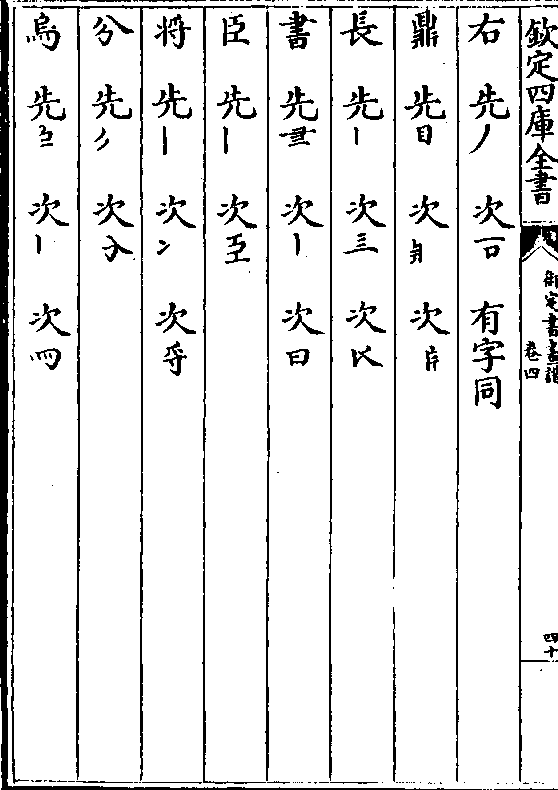 欽定四庫全書
御定書畫譜
卷四
四十
右 先丿 次𠮛 有字同
鼎 先目 次 次
長 先丨 次三 次
書 先 次丨 次曰
臣 先丨 次
将 先丨 次冫 次
分 先 次
烏 先 次丨 次